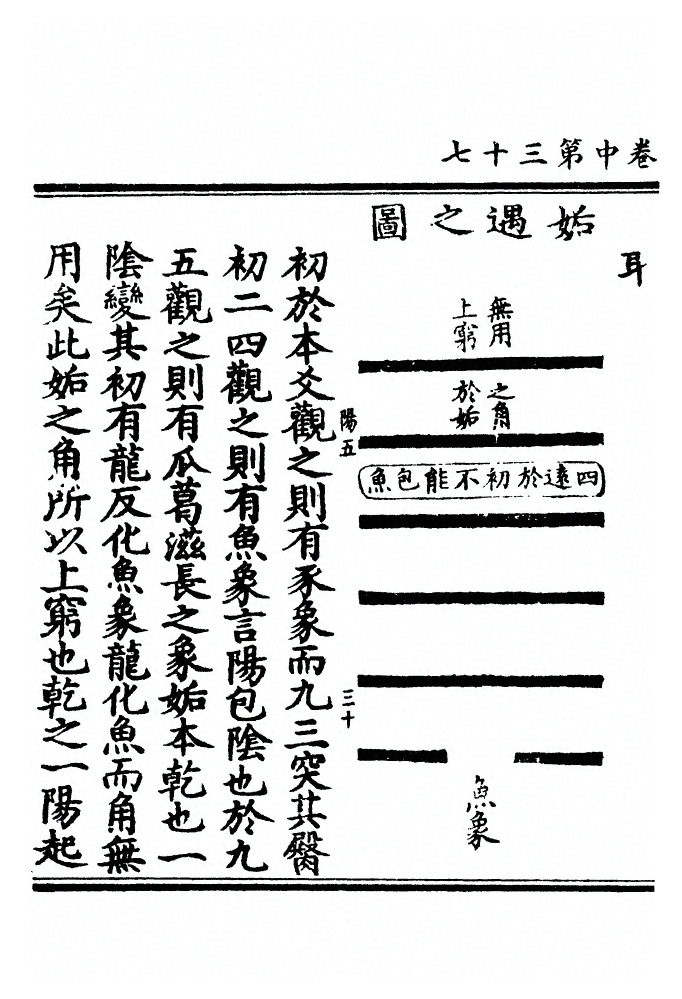 卷中第三十七
耳
姤遇之圖
無用
上窮
之角
於姤
四遠於初不能包魚
魚象
陽五
三十
初於本爻觀之則有豕象而九三突其臀
初二四觀之則有魚象言陽包陰也於九
五觀之則有瓜葛滋長之象姤本乾也一
陰變其初有龍反化魚象龍化魚而角無
用矣此姤之角所以上窮也乾之一陽起